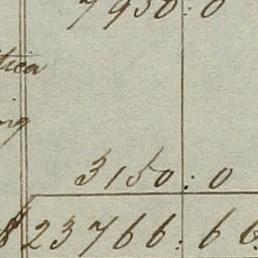 7950:0
tica
ing
3150:0
$23766:66